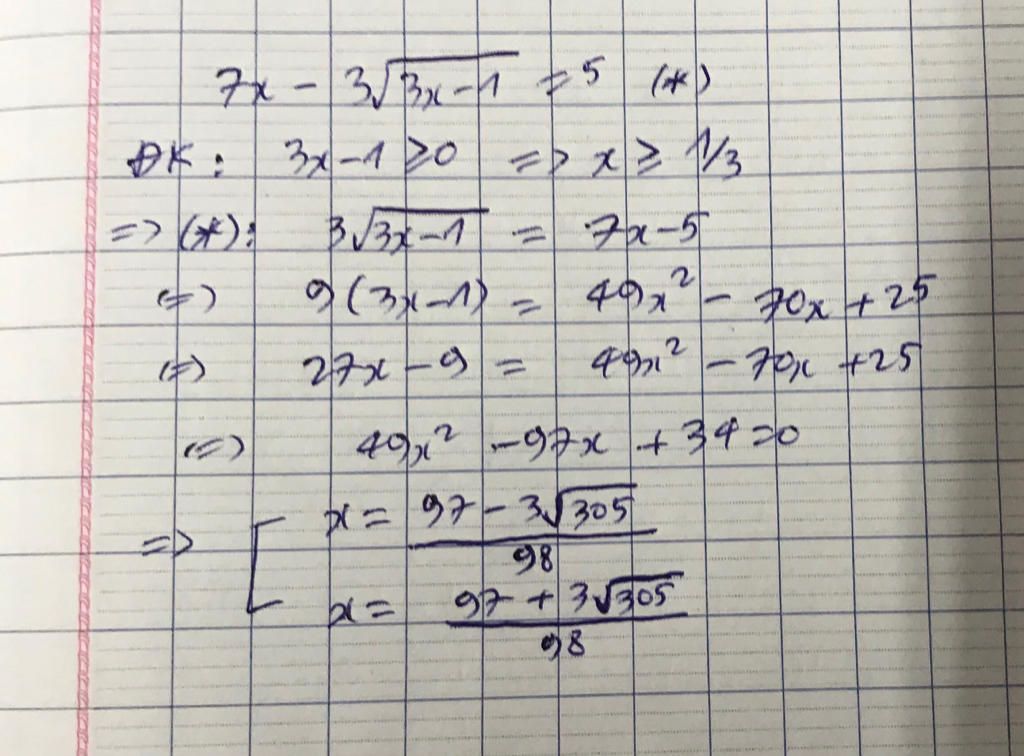 7x - 3√(3x-1) = 5 (*)
ĐK: 3x-1 ≥ 0 => x ≥ 1/3
=> (*): 3√(3x-1) = 7x-5
(=) 9(3x-1) = 49x² - 70x + 25
(=) 27x - 9 = 49x² - 70x + 25
(=) 49x² - 97x + 34 = 0
=> [ x = (97 - 3√305)/98
x = (97 + 3√305)/98